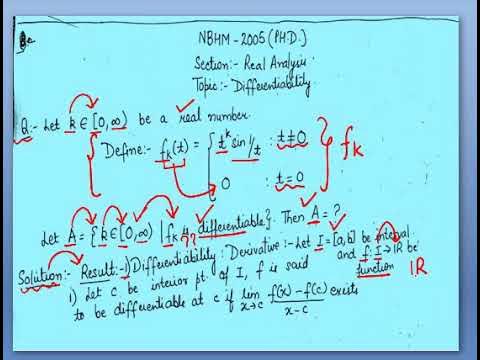 NBHM - 2005 (PHD.)
Section:- Real Analysis
Topic:- Differentiability
Q:- Let k ∈ [0, ∞) be a real number.
Define:- f_k(t) = { t^k sin 1/t : t ≠ 0
0 : t = 0 } f_k
Let A = {k ∈ [0, ∞) | f_k is differentiable}. Then A = ?
??
Solution:- Result:-1) Differentiability: Derivative:- Let I = [a,b] be interval
and f: I → IR be
function IR
1) Let c be interior pt. of I, f is said
to be differentiable at c if lim x→c f(x) - f(c) / x - c exists